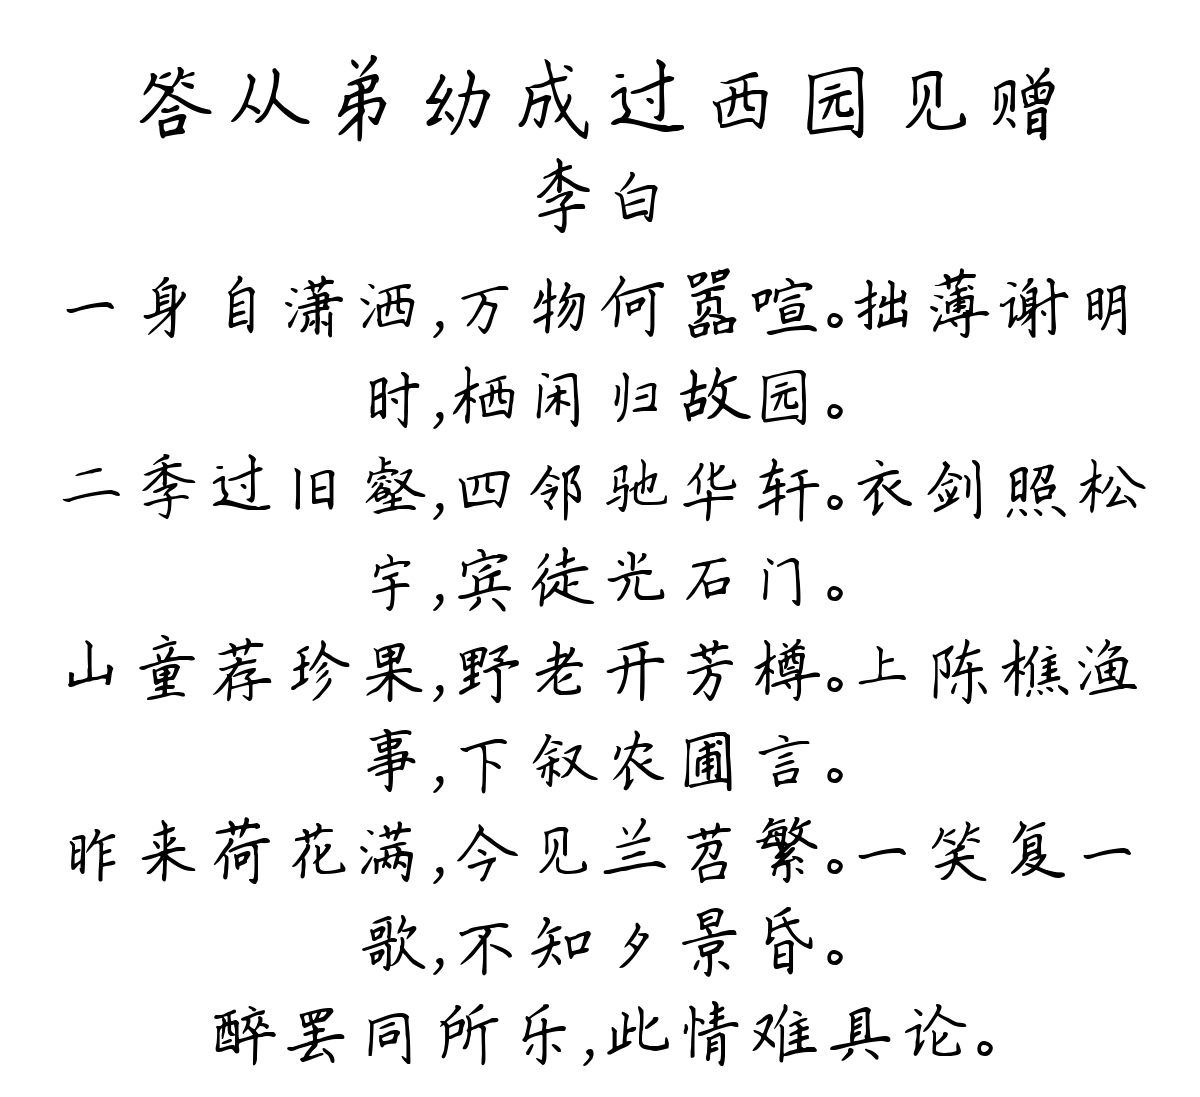 答从弟幼成过西园见赠
李白
一身自潇洒,万物何嚣喧。拙薄谢明
时,栖闲归故园。
二季过旧壑,四邻驰华轩。衣剑照松
宇,宾徒光石门。
山童荐珍果,野老开芳樽。上陈樵渔
事,下叙农圃言。
昨来荷花满,今见兰苕繁。一笑复一
歌,不知夕景昏。
醉罢同所乐,此情难具论。